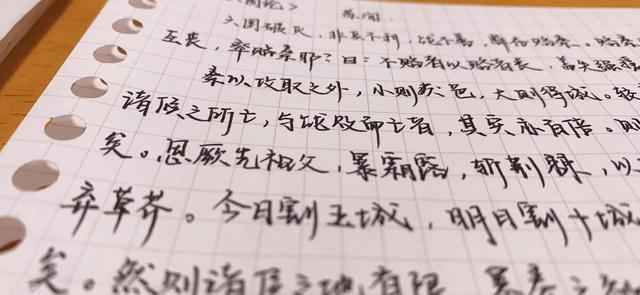 六国论>
苏洵
六国破灭,非兵不利,战不善,弊在赂秦。赂秦
互丧,率赂秦耶?曰:不赂者以赂者丧,盖失强援
秦以攻取之外,小则获邑,大则得城。较
诸侯之所亡,与战败而亡者,其实亦百倍。则
矣。思厥先祖父,暴霜露,斩荆棘,以
弃草芥。今日割五城,明日割十城
矣。然则诸侯之地有限,暴秦之